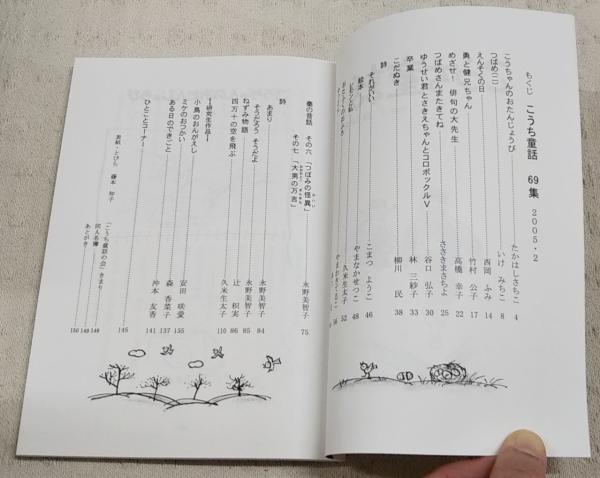 もくじ こうち童話 69集 2005・2
こうちゃんのおたんじょうび たかはしさちこ 4
つばめ二 いけ みちこ 8
えんそくの日 西岡 ふみ 14
勇と健兄ちゃん 竹村 公子 17
めざせ！ 俳句の大先生 高橋 幸子 22
つばめさんまたきてね ささきまさちよ 25
ゆうせい君とさきえちゃんとコロボックルⅤ 谷口 弘子 30
卒業 林 三紗子 33
こだぬき 柳川 民 38
詩
それがいい こまつ ようこ 46
絵本 やまなかせつこ 48
久米生太子 52
桑の昔話 その六 「つぼみの怪異」
その七 「大男の万吉」 永野美智子 75
詩
あまり 永野美智子 84
そうだろう そうだよ 永野美智子 85
ねずみ物語 辻 積実 86
四万十の空を飛ぶ 久米生太子 110
ー研究生作品ー
小鳥のおんがえし 安田 咲愛 135
ミケのおつかい 森 香菜子 137
ある日のできごと 沖本 友香 141
ひとことコーナー 145
表紙・とびら 藤本 知子
「こうち童話の会」きまり 148
同人名簿 149
あとがき 150